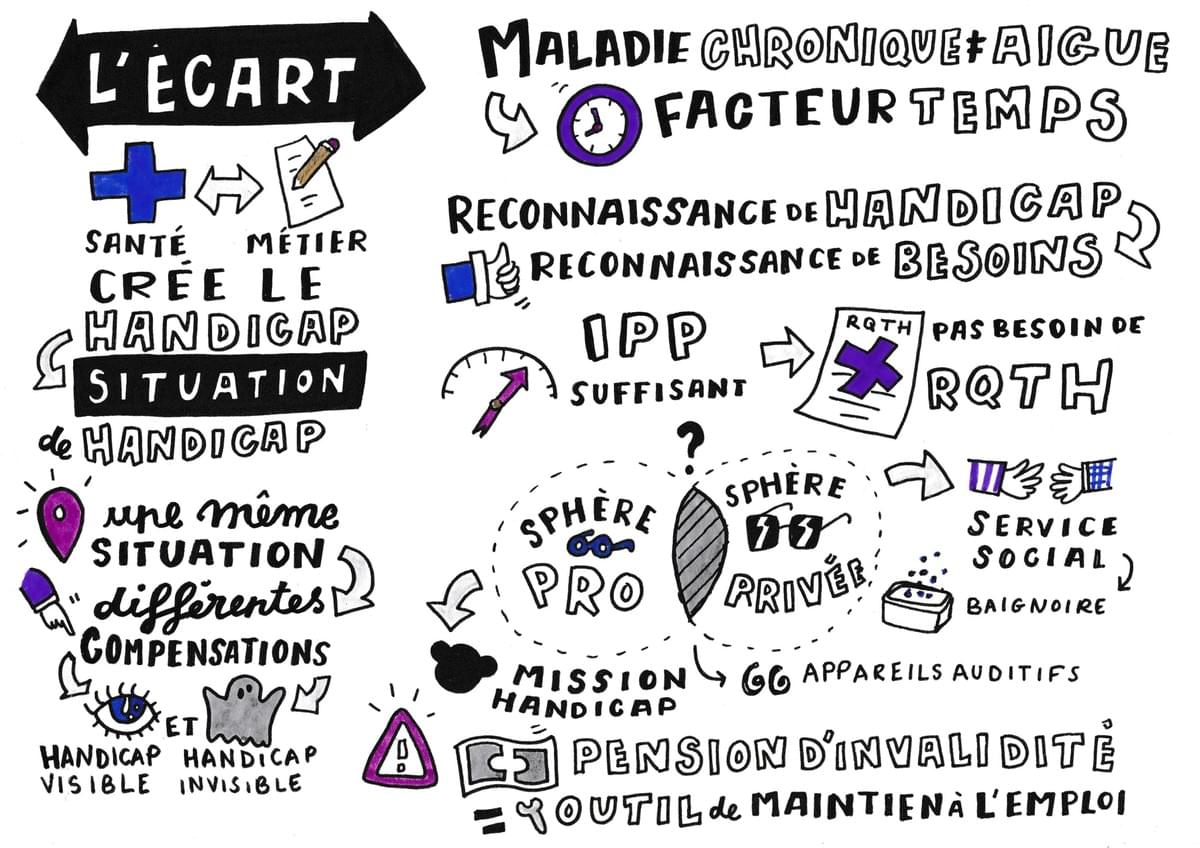 L'ÉCART
SANTÉ MÉTIER
CRÉE LE
HANDICAP
SITUATION
de HANDICAP
une même
SITUATION
différentes
COMPENSATIONS
ET
HANDICAP VISIBLE
HANDICAP INVISIBLE
MALADIE CHRONIQUE ≠ AIGUE
FACTEUR TEMPS
RECONNAISSANCE DE HANDICAP
RECONNAISSANCE DE BESOINS
IPP
SUFFISANT
RQTH
PAS BESOIN DE
RQTH
?
SPHÈRE
PRO
SPHÈRE
PRIVÉE
SERVICE
SOCIAL
BAIGNOIRE
MISSION
HANDICAP
APPAREILS AUDITIFS
!
PENSION D'INVALIDITÉ
= OUTIL de MAINTIEN À L'EMPLOI